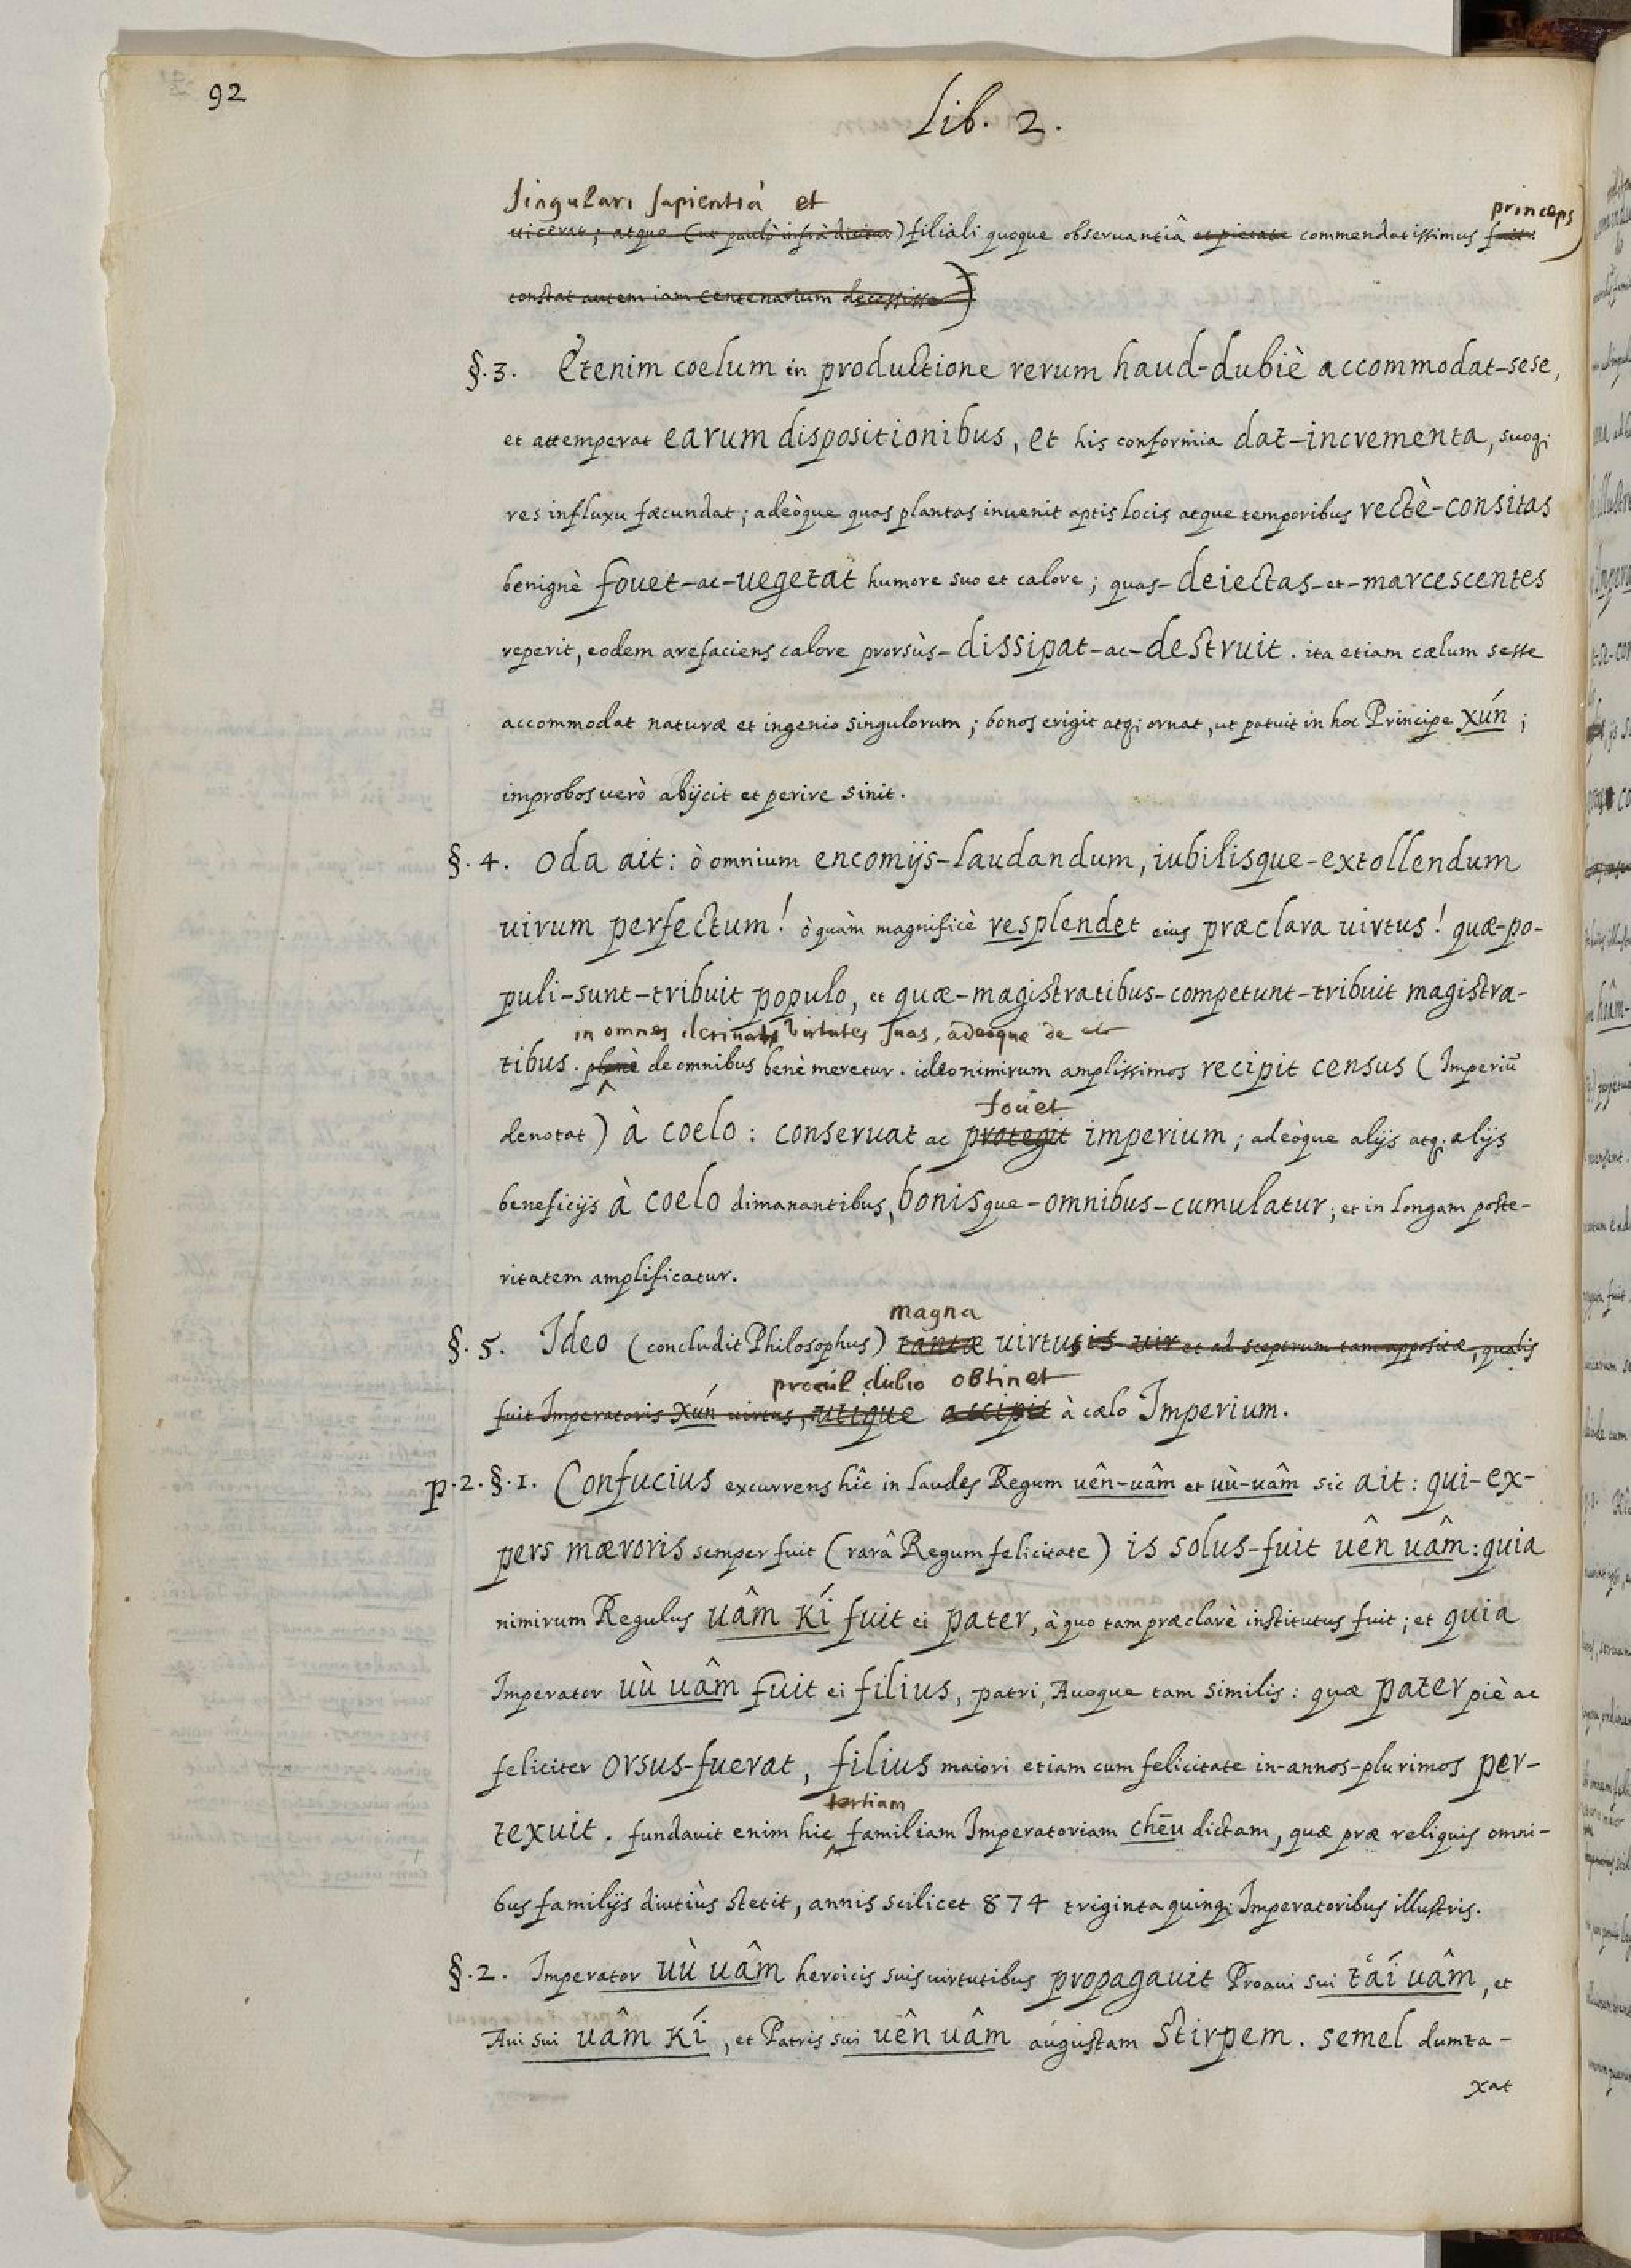 92
Lib. 2.
singulari sapientiâ et princeps)
uicerat; atque (ut paulò infrà dicitur) filiali quoque obseruantiâ et pietate commendatissimus fuit.
constat autem iam centenarium decessisse)
§.3. Etenim coelum in productione rerum haud-dubiè accommodat-sese,
et attemperat earum dispositionibus, et his conformia dat-incrementa, suoq;
res influxu fæcundat; adeòque quas plantas inuenit aptis locis atque temporibus rectè-consitas
benignè fouet-ac-uegetat humore suo et calore; quas-deiectas-et-marcescentes
reperit, eodem arefaciens calore prorsùs-dissipat-ac-destruit. ita etiam cælum sesse
accommodat naturæ et ingenio singulorum; bonos erigit atq; ornat, ut patuit in hoc Principe xún;
improbos uerò abijcit et perire sinit.
§.4. Oda ait: ò omnium encomijs-laudandum, iubilisque-extollendum
uirum perfectum! ò quàm magnificè resplendet eius præclara uirtus! quæ-po-
puli-sunt-tribuit populo, et quæ-magistratibus-competunt-tribuit magistra-
in omnes deriuat virtutes suas, adeoque de
tibus. planè de omnibus benè meretur. ideo nimirum amplissimos recipit census (Imperiũ
fouet
denotat) à coelo: conseruat ac protegit imperium; adeòque alijs atq; alijs
beneficijs à coelo dimanantibus, bonisque-omnibus-cumulatur; et in longam poste-
ritatem amplificatur.
magna
§.5. Ideo (concludit Philosophus) tantæ uirtutis uir et ad sceptrum tam appositæ, qualis
procúl dubio obtinet
fuit Imperatoris Xún uirtus, utique accipit à cælo Imperium.
p.2.§.1. Confucius excurrens hîc in laudes Regum uên-uâm et uù-uâm sic ait: qui-ex-
pers mæroris semper fuit (rarâ Regum felicitate) is solus-fuit uên uâm: quia
nimirum Regulus uâm Kí fuit ei pater, à quo tam præclarè institutus fuit; et quia
Imperator uù uâm fuit ei filius, patri, Auoque tam similis: quæ pater piè ac
feliciter orsus-fuerat, filius maiori etiam cum felicitate in-annos-plurimos per-
tertiam
texuit. fundauit enim hic familiam Imperatoriam chēu dictam, quæ præ reliquis omni-
bus familijs diutiùs stetit, annis scilicet 874 triginta quinq; Imperatoribus illustris.
§.2. Imperator uù uâm heroicis suis uirtutibus propagauit Proaui sui tái uâm, et
Aui sui uâm Kí, et Patris sui uên uâm augustam stirpem. semel dumta-
xat